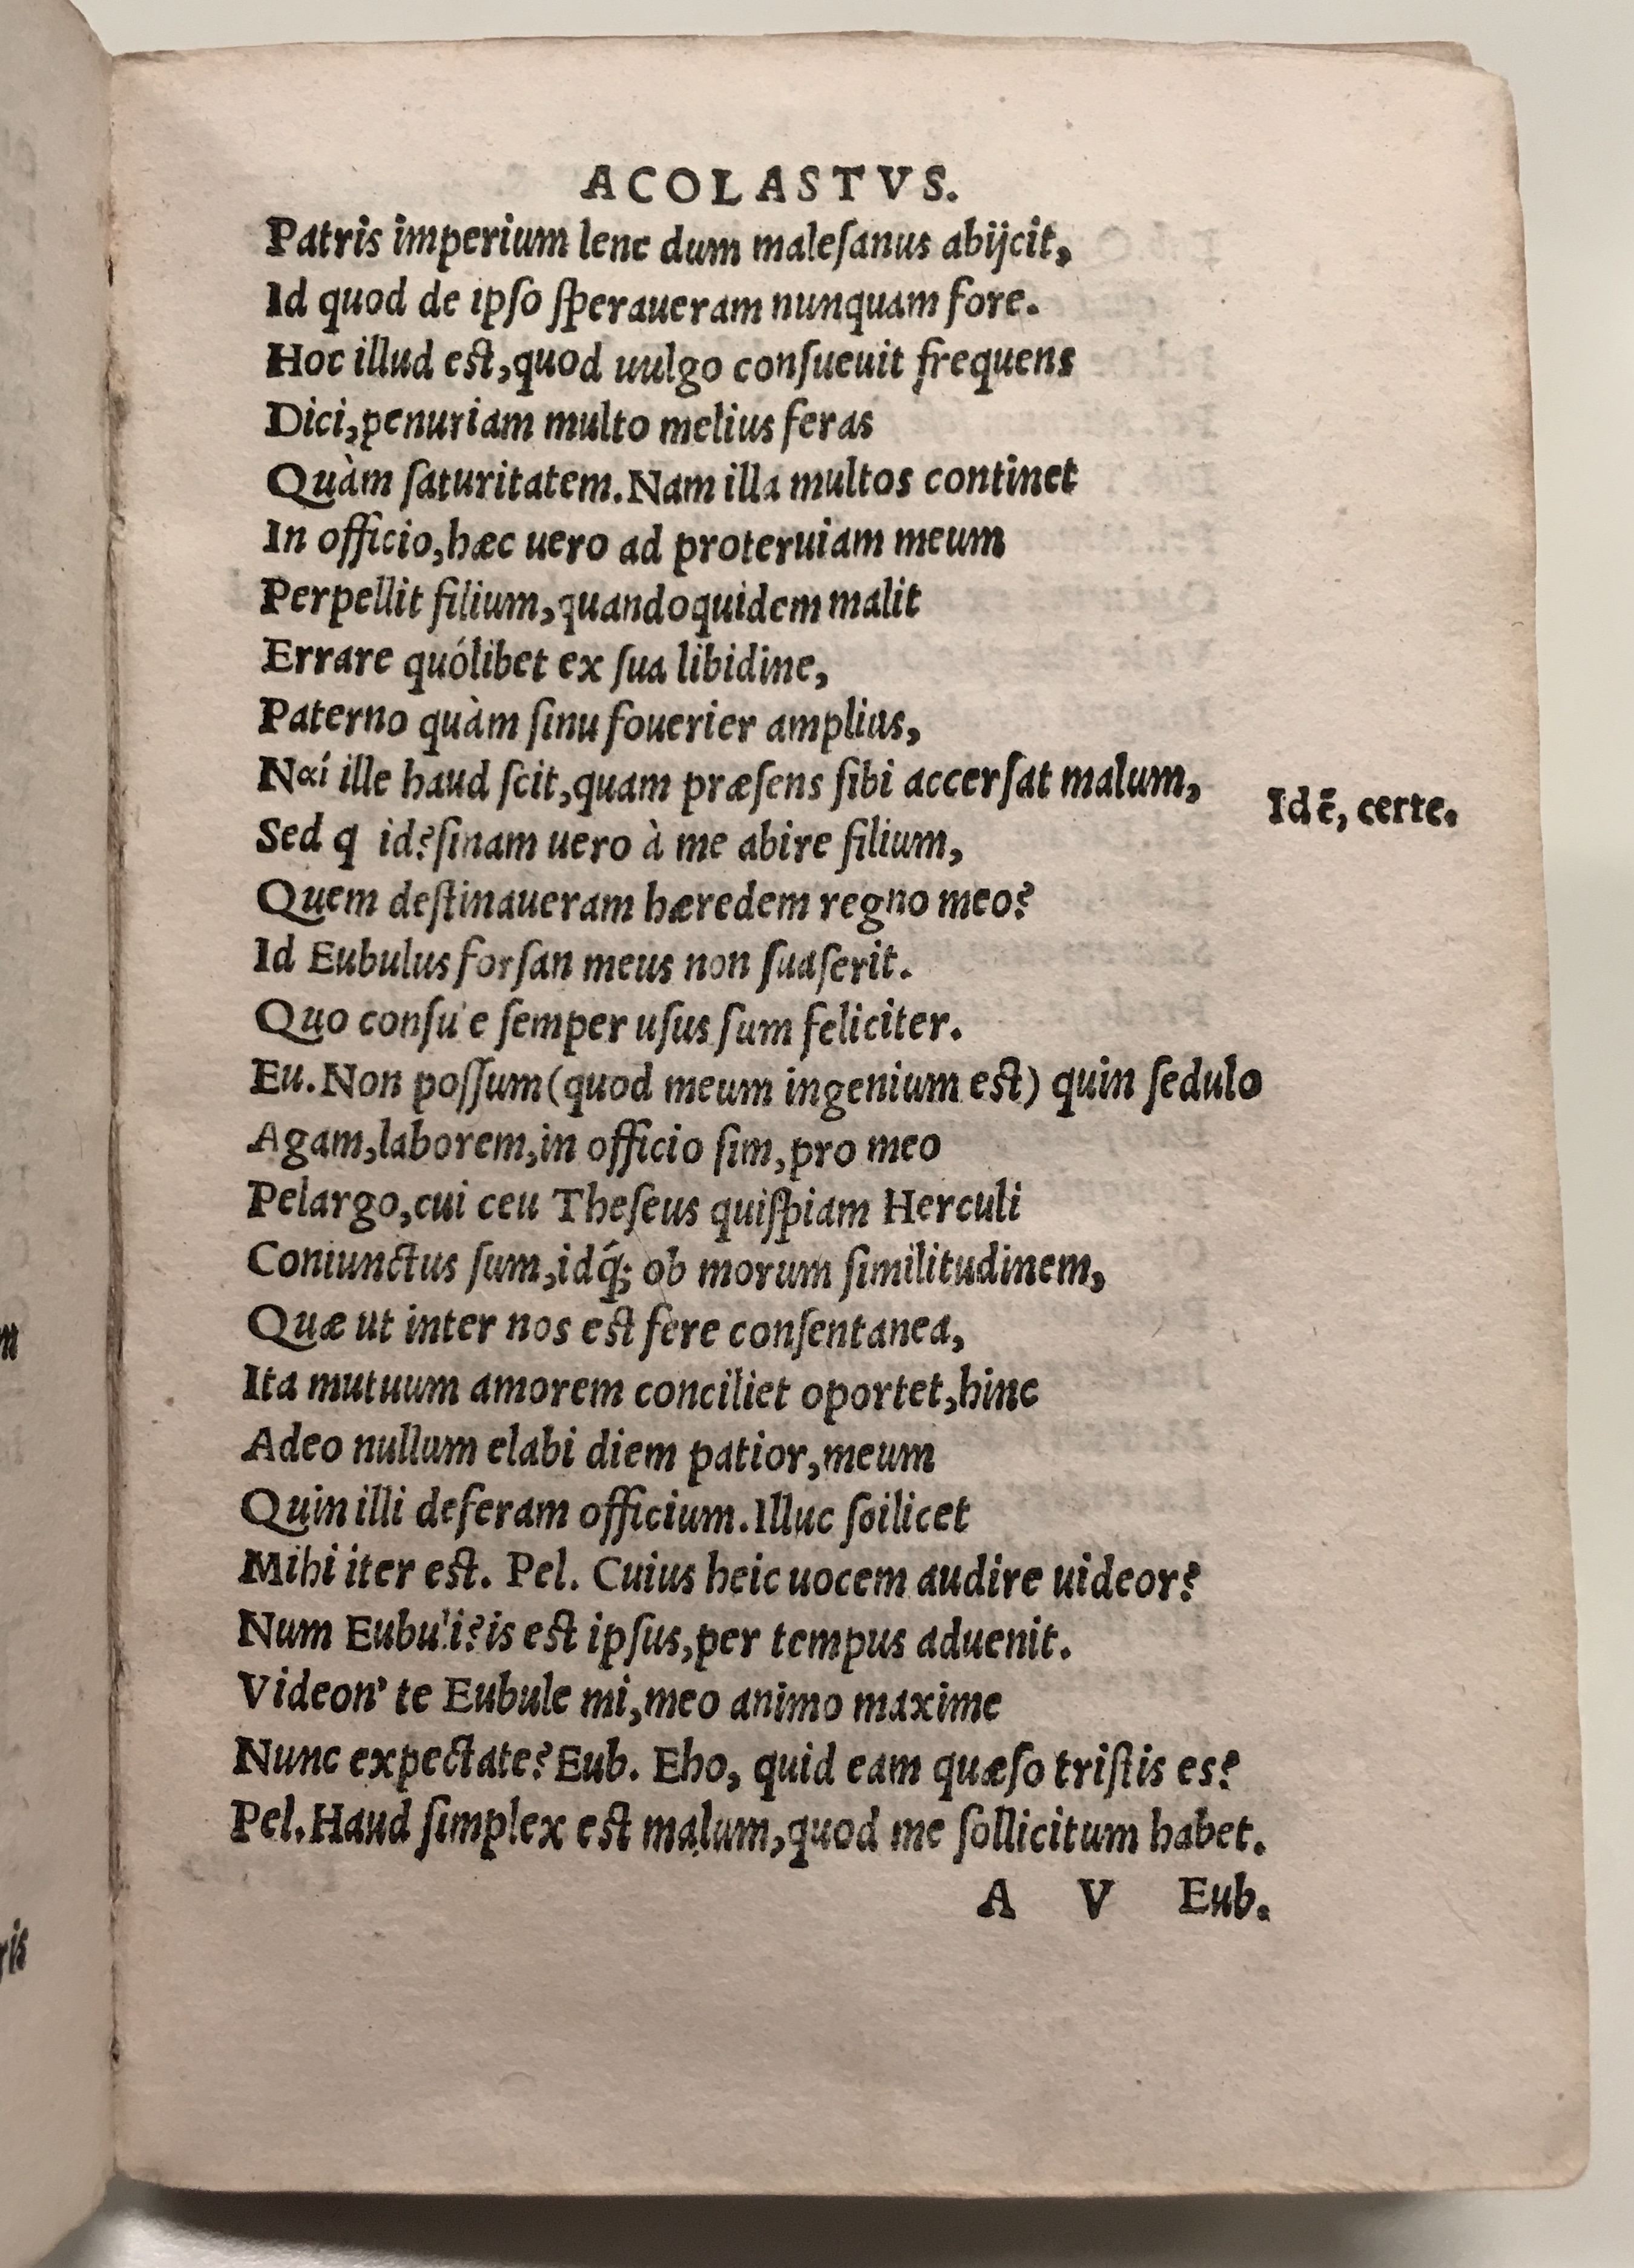 ACOLASTVS.
Patris imperium lene dum malesanus abijcit,
Id quod de ipso speraueram nunquam fore.
Hoc illud est, quod uulgo consueuit frequens
Dici, penuriam multo melius feras
Quàm saturitatem. Nam illa multos continet
In officio, hæc uero ad proteruiam meum
Perpellit filium, quandoquidem malit
Errare quólibet ex sua libidine,
Paterno quàm sinu fouerier amplius,
Nαί ille haud scit, quam præsens sibi accersat malum,
Id ē, certe.
Sed q id? sinam uero à me abire filium,
Quem destinaueram hæredem regno meo?
Id Eubulus forsan meus non suaserit.
Quo consu e semper usus sum feliciter.
Eu. Non possum (quod meum ingenium est) quin sedulo
Agam, laborem, in officio sim, pro meo
Pelargo, cui ceu Theseus quispiam Herculi
Coniunctus sum, idq́; ob morum similitudinem,
Quæ ut inter nos est fere consentanea,
Ita mutuum amorem conciliet oportet, hinc
Adeo nullum elabi diem patior, meum
Quin illi deferam officium. Illuc soilicet
Mihi iter est. Pel. Cuius heic uocem audire uideor?
Num Eubuli? is est ipsus, per tempus aduenit.
Videon' te Eubule mi, meo animo maxime
Nunc expectate? Eub. Eho, quid eam quæso tristis es?
Pel. Haud simplex est malum, quod me sollicitum habet.
A V Eub.